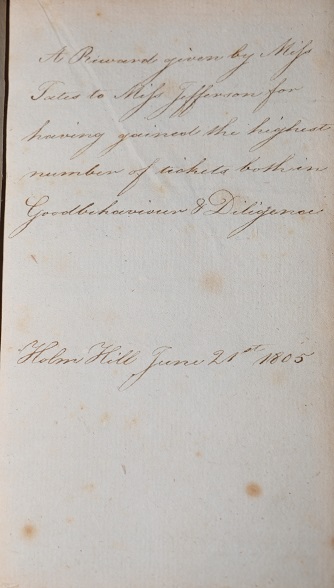 A Reward given by Miss
Tates to Miss Jefferson for
having gained the highest
number of tickets both in
Goodbehaviour & Diligence
Holm Hill June 21st 1805